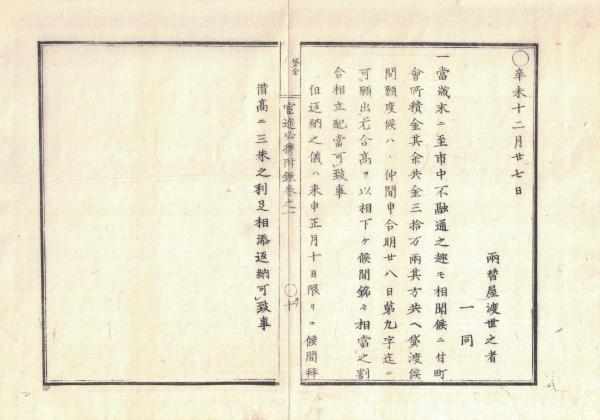 ○辛未十二月廿七日
両替屋渡世之者
一同
一當歳末ニ至市中不融通之趣モ相聞候ニ付町
會所積金其余共金三拾万両其方共ヘ貸渡候
間願度候ハヽ仲間申合明廿八日第九字迄ニ
可願出尤合高ヲ以相下ケ候間銘々相當之割
合相立配當可致事
但返納之儀ハ来申正月十日限リニ候間拝
貸金
官途必携附録巻之一
○十
借高ニ三朱之利足相添返納可致事